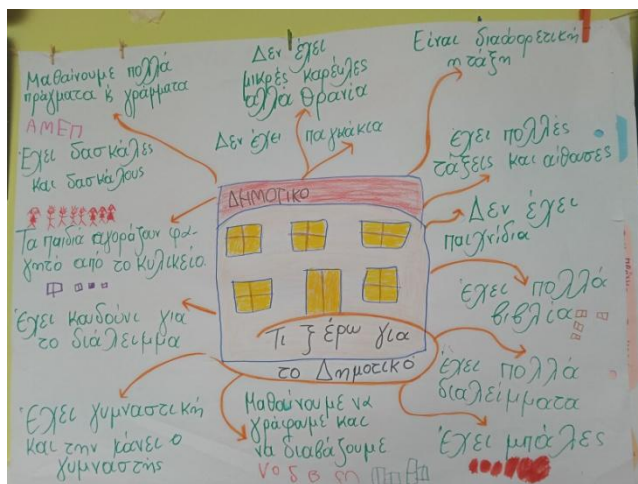 Μαθαίνουμε πολλά
πράγματα & γράμματα
ΑΜΕΠ
Έχει δασκάλες
και δασκάλους
Τα παιδιά αγοράζουν φα-
γητό από το κυλικείο
Έχει κουδούνι για
το διάλειμμα
Έχει γυμναστική
και την κάνει ο
γυμναστής
Δεν έχει
μικρές καρέκλες
αλλά θρανία
Δεν έχει παγκάκια
Είναι διαφορετική
η τάξη
Έχει πολλές
τάξεις και αίθουσες
Δεν έχει
παιχνίδια
Έχει πολλά
βιβλία
Έχει πολλά
διαλείμματα
Έχει μπάλες
Μαθαίνουμε να
γράφουμε και
να διαβάζουμε
ΔΗΜΟΤΙΚΟ
Τι ξέρω για
το Δημοτικό